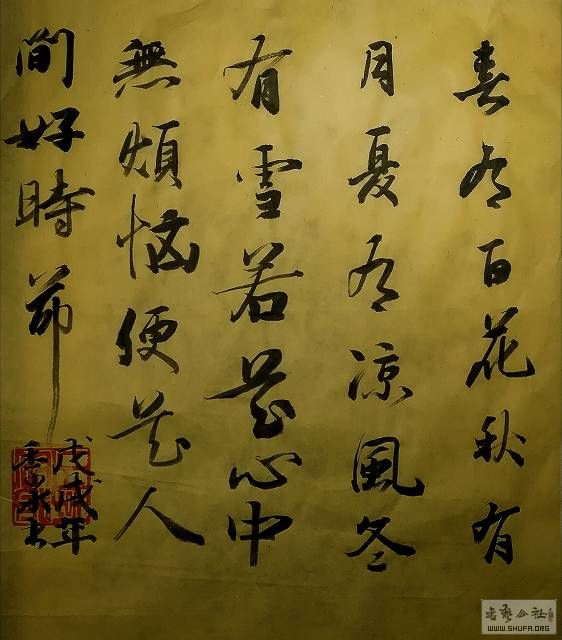 春有百花秋有
月夏有凉風冬
有雪若是心中
無煩惱便是人
間好時節
戊戌年
書藝公社
WWW.SHUFA.ORG